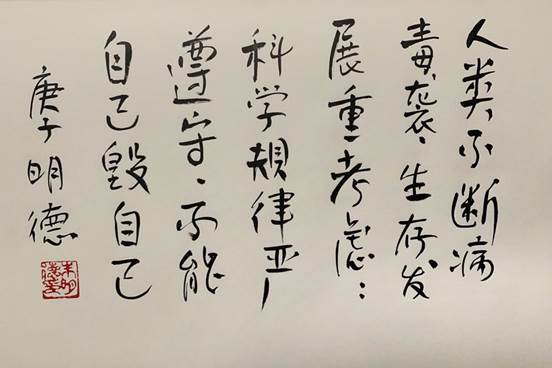 人类不断病
毒袭、生存发
展重考虑：
科学规律严
遵守、不能
自己毁自己
庚子明德